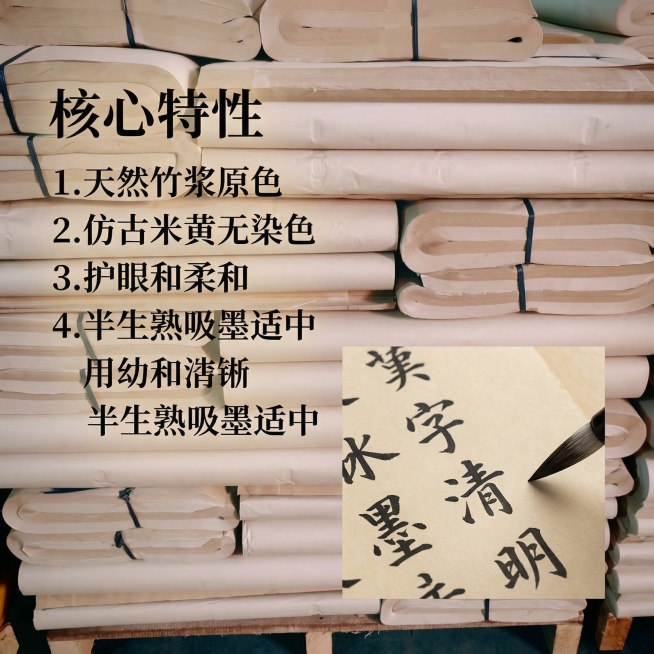 核心特性
1.天然竹浆原色
2.仿古米黄无染色
3.护眼和柔和
4.半生熟吸墨适中
用幼和
半生熟吸墨适中
漢
字
冰
清
墨
明